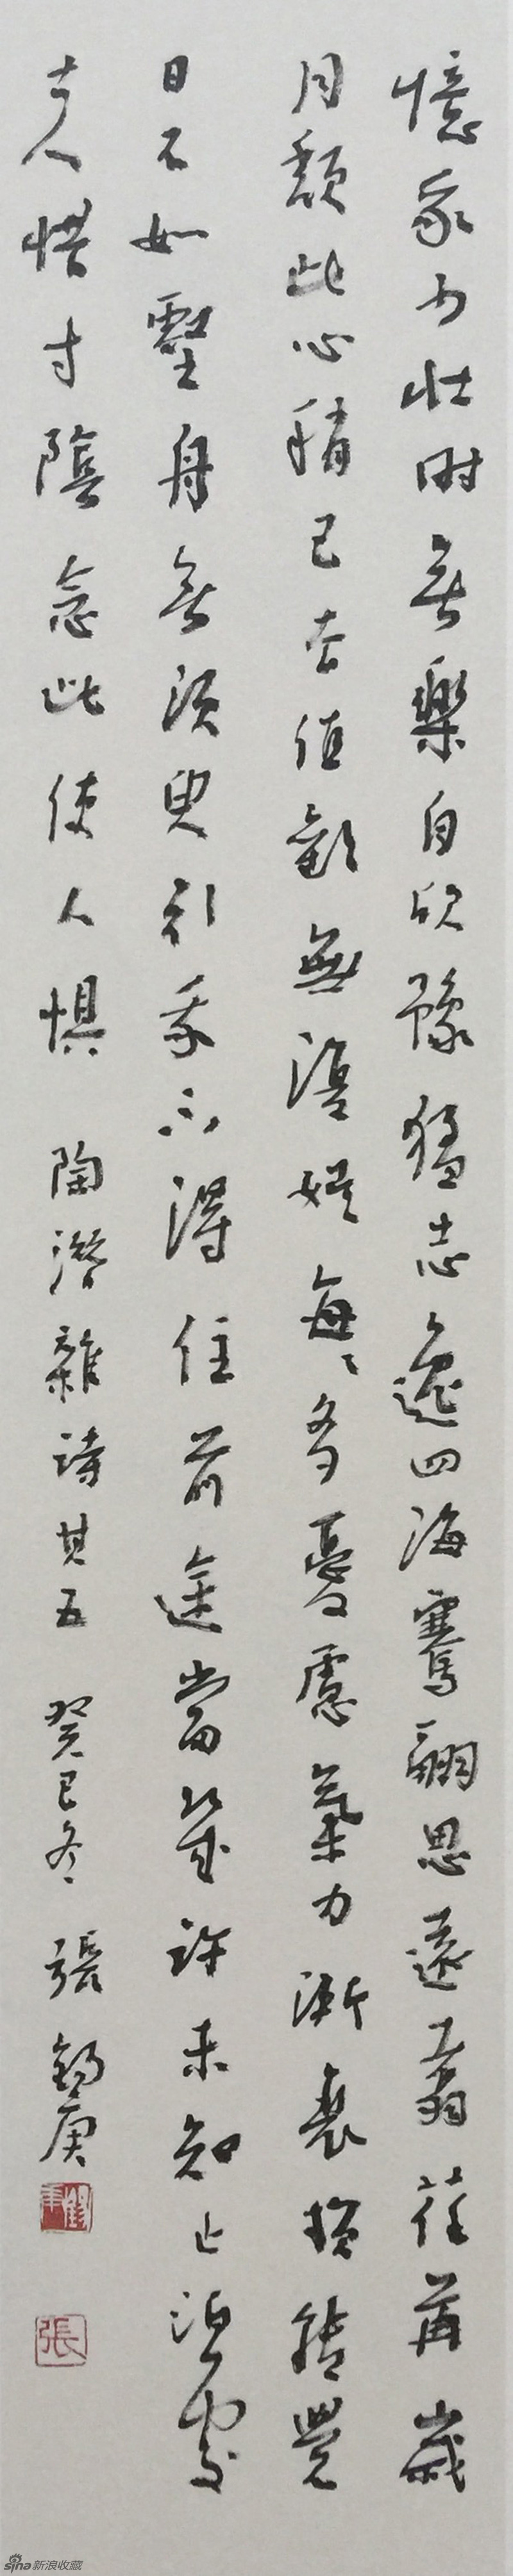 憶我少壯時無樂自欣豫猛志逸四海騫翮思遠翥荏苒歲
月頹此心稍已去值歡無復娛每〻多憂慮氣力漸衰損轉覺
日不如壑舟無須臾引我不得住前途當幾許未知止泊處
古人惜寸陰念此使人懼 陶潛雜詩其五 癸巳冬 張錫庚
張
sina新浪收藏